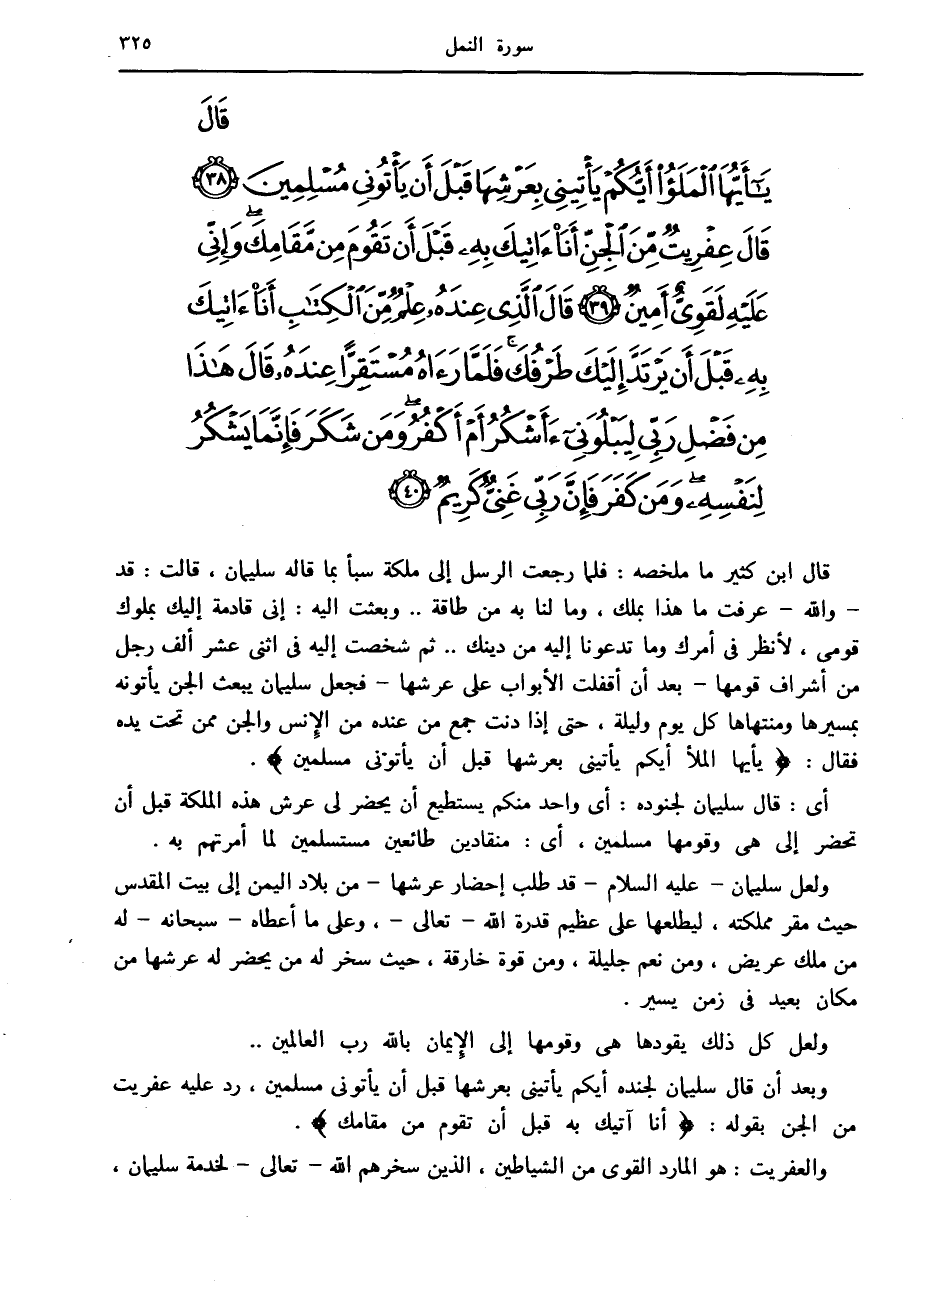 سورة النمل ٣٢٥
قَالَ
يَـٰٓأَيُّهَا ٱلْمَلَؤُا۟ أَيُّكُمْ يَأْتِينِى بِعَرْشِهَا قَبْلَ أَن يَأْتُونِى مُسْلِمِينَ ٣٨
قَالَ عِفْرِيتٌ مِّنَ ٱلْجِنِّ أَنَا۠ ءَاتِيكَ بِهِۦ قَبْلَ أَن تَقُومَ مِن مَّقَامِكَ ۖ وَإِنِّى
عَلَيْهِ لَقَوِىٌّ أَمِينٌ ٣٩ قَالَ ٱلَّذِى عِندَهُۥ عِلْمٌ مِّنَ ٱلْكِتَـٰبِ أَنَا۠ ءَاتِيكَ
بِهِۦ قَبْلَ أَن يَرْتَدَّ إِلَيْكَ طَرْفُكَ ۚ فَلَمَّا رَءَاهُ مُسْتَقِرًّا عِندَهُۥ قَالَ هَـٰذَا
مِن فَضْلِ رَبِّى لِيَبْلُوَنِىٓ ءَأَشْكُرُ أَمْ أَكْفُرُ ۖ وَمَن شَكَرَ فَإِنَّمَا يَشْكُرُ
لِنَفْسِهِۦ ۖ وَمَن كَفَرَ فَإِنَّ رَبِّى غَنِىٌّ كَرِيمٌ ٤٠
قال ابن كثير ما ملخصه : فلما رجعت الرسل إلى ملكة سبأ بما قاله سليمان ، قالت : قد
– والله – عرفت ما هذا بملك ، وما لنا به من طاقة .. وبعثت اليه : إنى قادمة إليك بملوك
قومى ، لأنظر فى أمرك وما تدعونا إليه من دينك .. ثم شخصت إليه فى اثنى عشر ألف رجل
من أشراف قومها – بعد أن أقفلت الأبواب على عرشها – فجعل سليمان يبعث الجن يأتونه
بمسيرها ومنتهاها كل يوم وليلة ، حتى إذا دنت جمع من عنده من الإنس والجن ممن تحت يده
فقال : ﴿ يأيها الملأ أيكم يأتينى بعرشها قبل أن يأتونى مسلمين ﴾ .
أى : قال سليمان لجنوده : أى واحد منكم يستطيع أن يحضر لى عرش هذه الملكة قبل أن
تحضر إلى هى وقومها مسلمين ، أى : منقادين طائعين مستسلمين لما أمرتهم به .
ولعل سليمان – عليه السلام – قد طلب إحضار عرشها – من بلاد اليمن إلى بيت المقدس
حيث مقر مملكته ، ليطلعها على عظيم قدرة الله – تعالى – ، وعلى ما أعطاه – سبحانه – له
من ملك عريض ، ومن نعم جليلة ، ومن قوة خارقة ، حيث سخر له من يحضر له عرشها من
مكان بعيد فى زمن يسير .
ولعل كل ذلك يقودها هى وقومها إلى الإيمان بالله رب العالمين ..
وبعد أن قال سليمان لجنده أيكم يأتينى بعرشها قبل أن يأتونى مسلمين ، رد عليه عفريت
من الجن بقوله : ﴿ أنا آتيك به قبل أن تقوم من مقامك ﴾ .
والعفريت : هو المارد القوى من الشياطين ، الذين سخرهم الله – تعالى – لخدمة سليمان ،